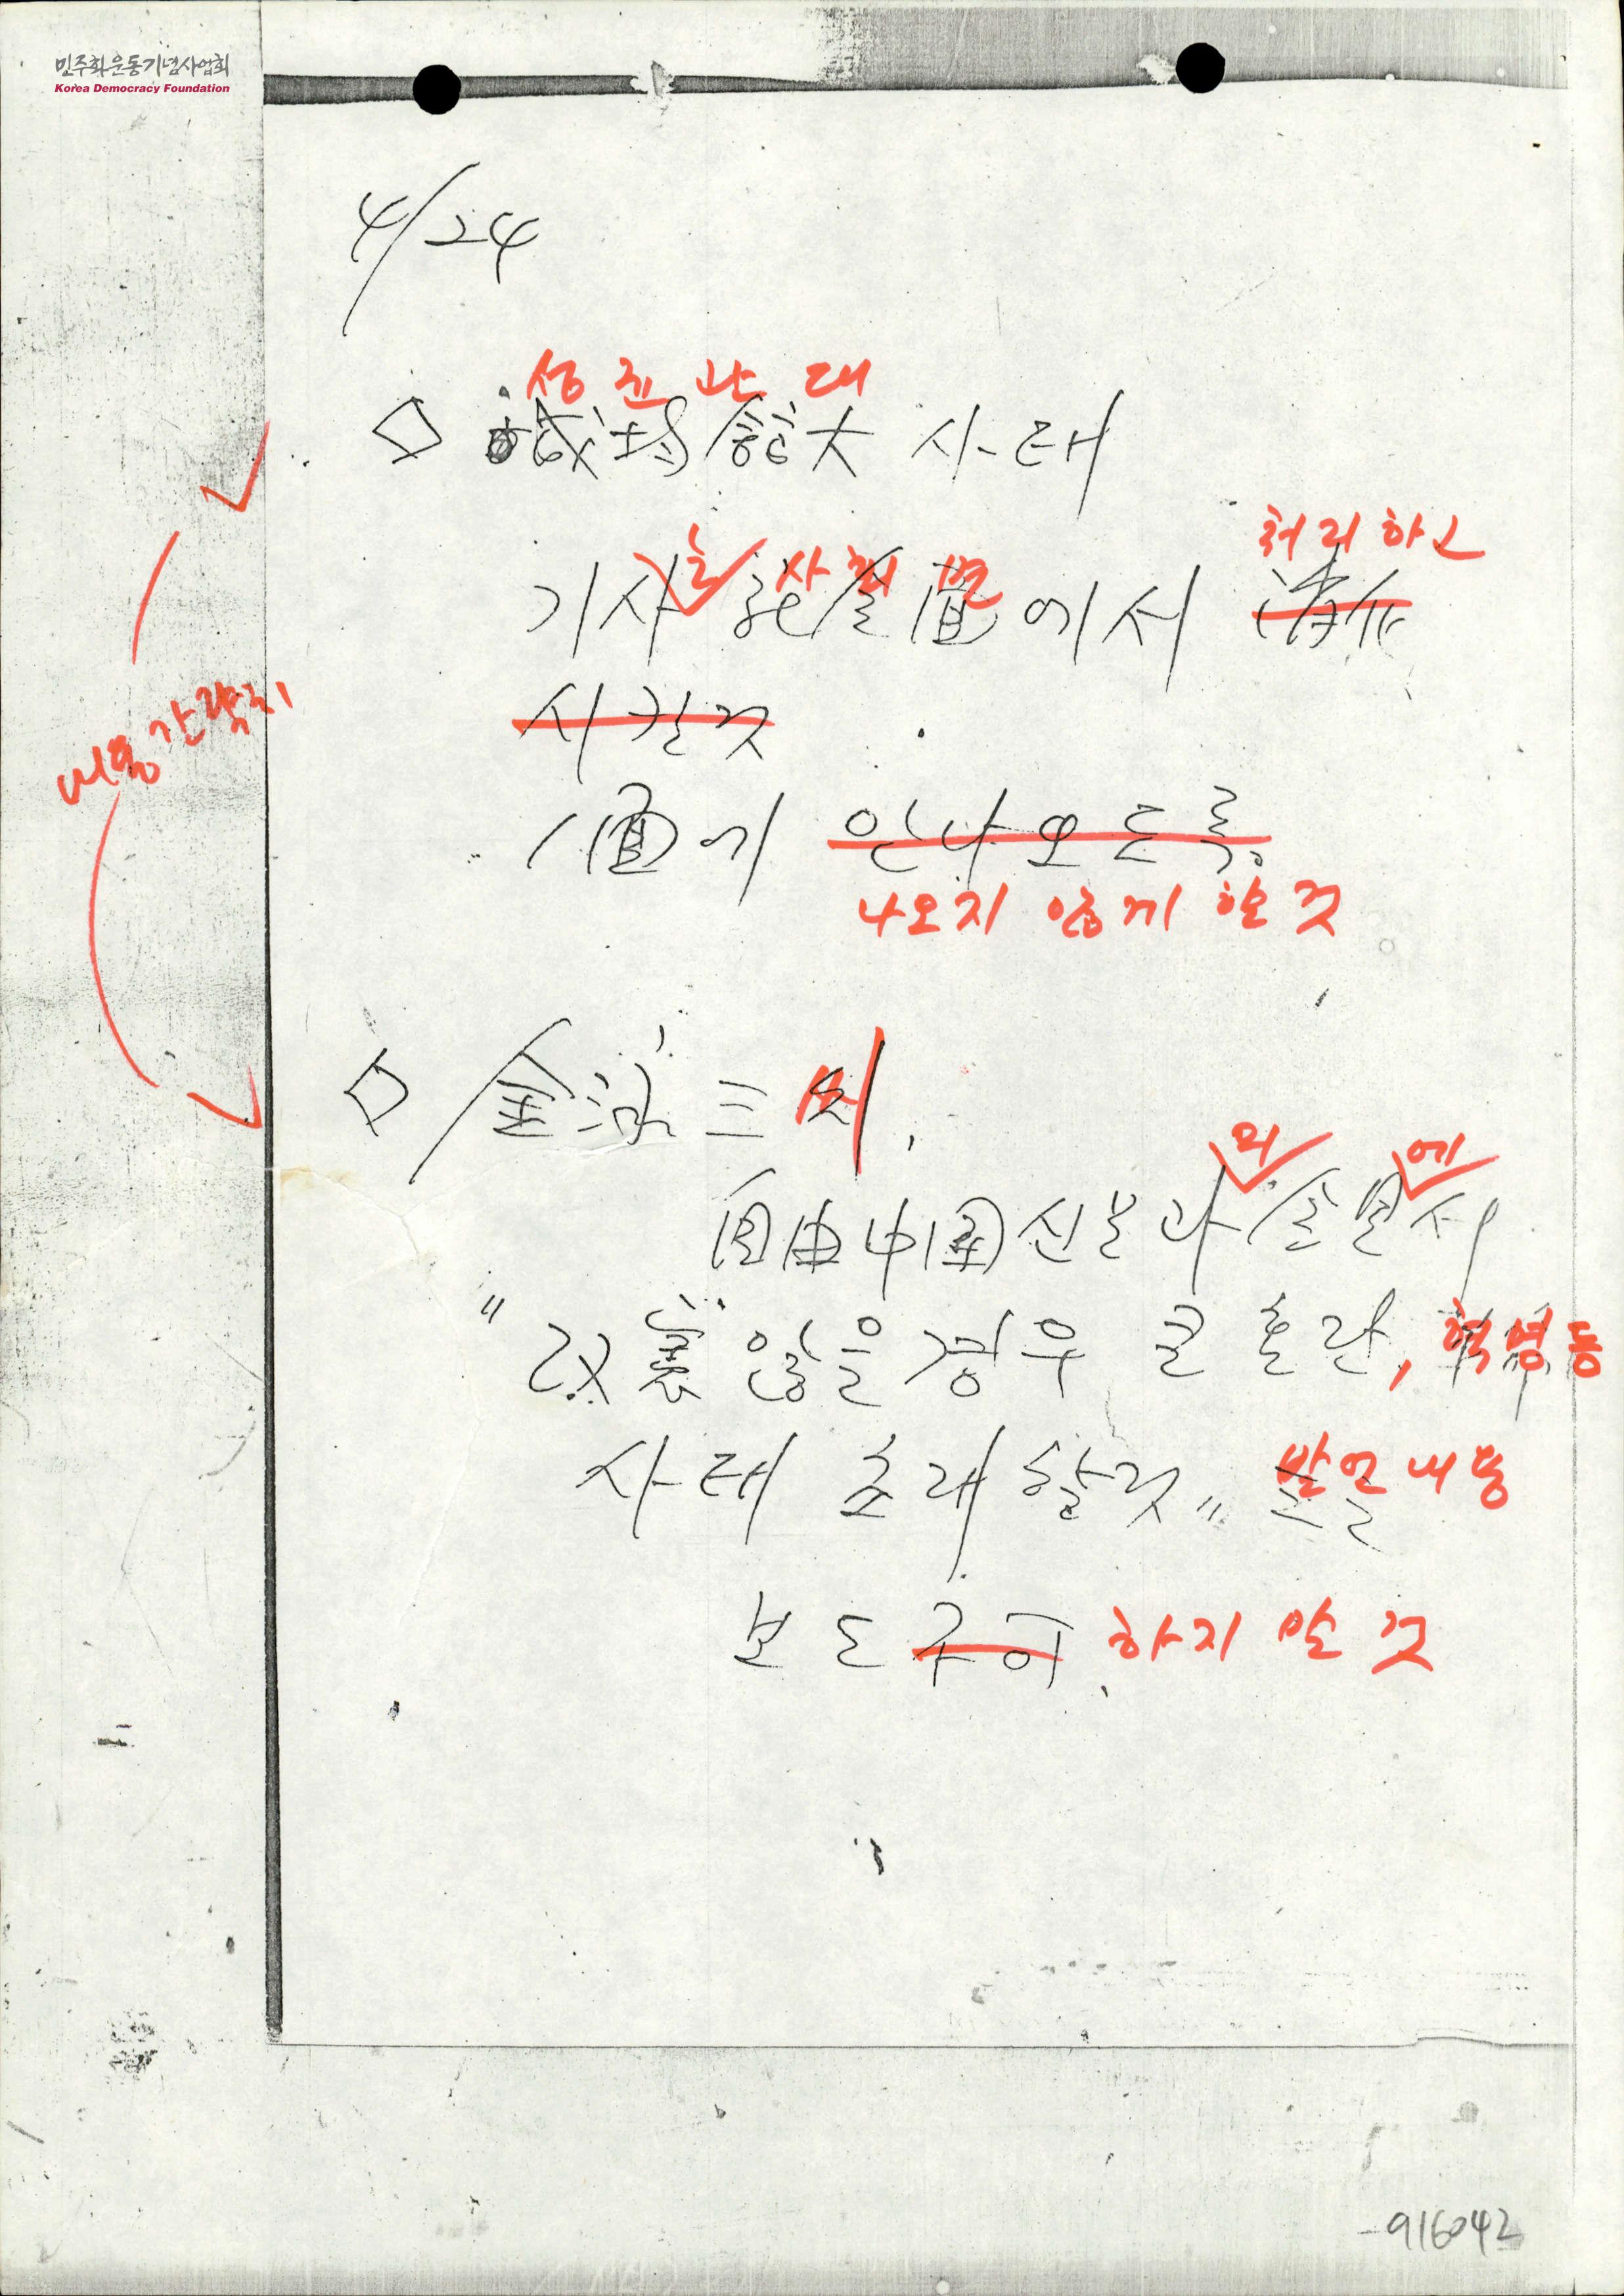 민주화운동기념사업회
Korea Democracy Foundation
4/24
성균관대
館大 사태
처리하고
기사를 社会面에서 消化
시킬것
내용간략히
1面에 안나오도록
나오지 않게 할 것
金泳三씨
의 에
自由中国신문과 회견서
"改憲않을경우 큰 혼란, 혁명등
사태 초래할것" 발언내용
보도주의 하지 말 것
916042